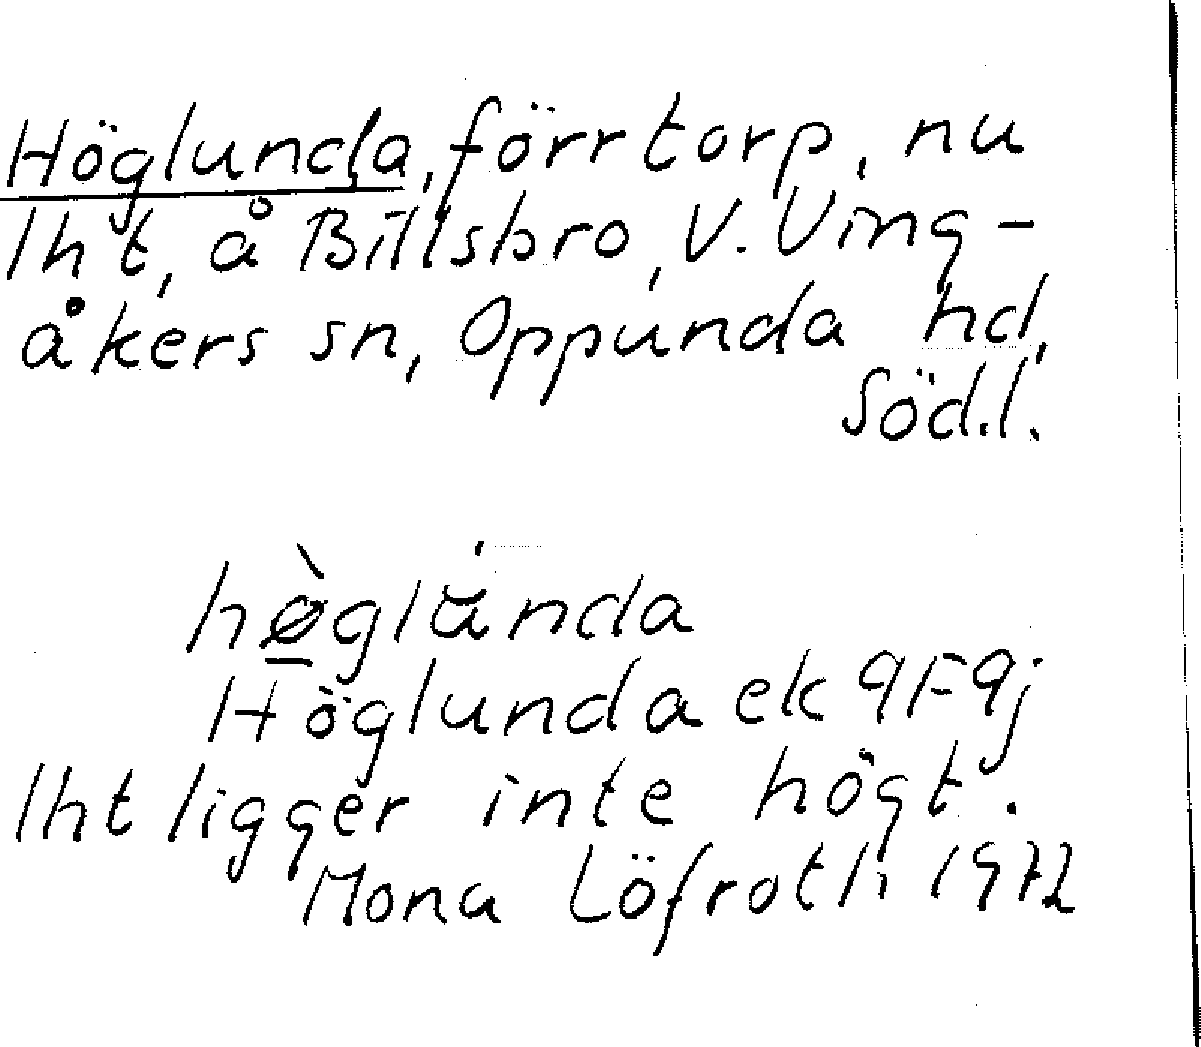 Höglunda, förr torp, nu
lht, å Billsbro, V. Ving-
åkers sn, Oppunda hd,
Söd.l.
hø̠̀glúnda
Höglunda ek 9F9j
lht ligger inte högt.
Mona Löfroth 1972